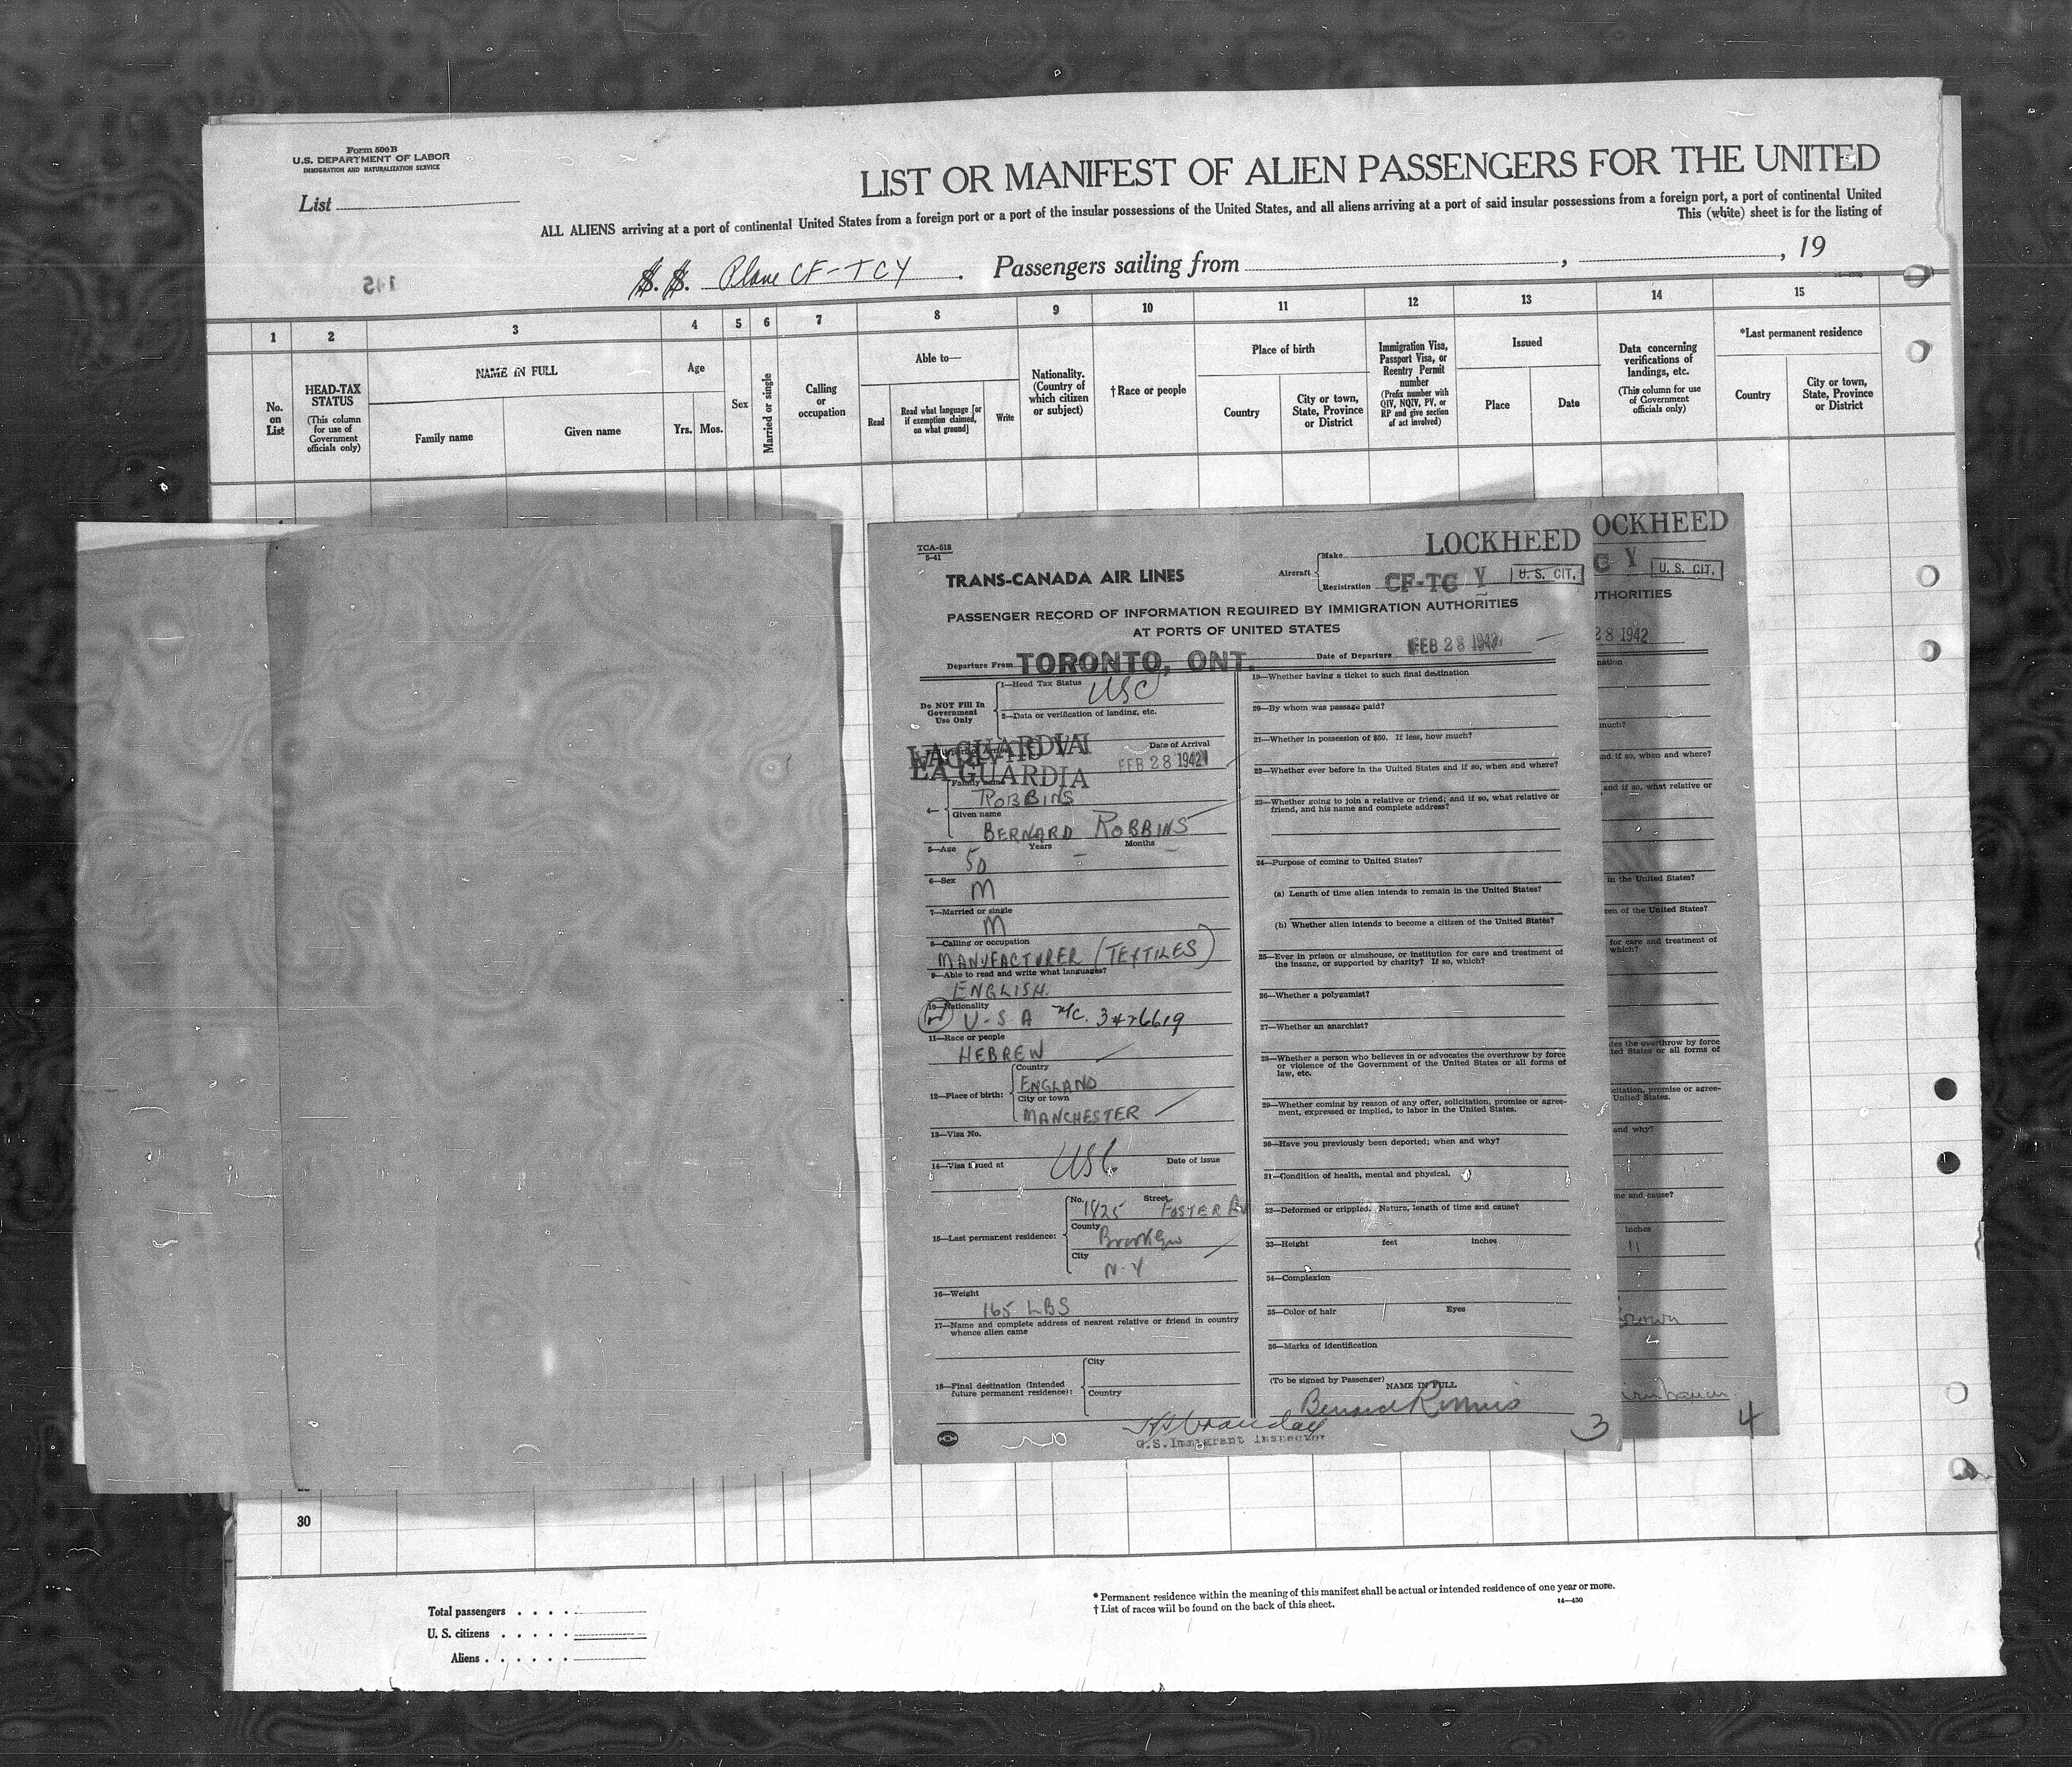 Form 500B
U.S. DEPARTMENT OF LABOR
IMMIGRATION AND NATURALIZATION SERVICE
List
LIST OR MANIFEST OF ALIEN PASSENGERS FOR THE UNITED
ALL ALIENS arriving at a port of continental United States from a foreign port or a port of the insular possessions of the United States, and all aliens arriving at a port of said insular possessions from a foreign port, a port of continental United
This (white) sheet is for the listing of
S. S. Plane CF-TCY . Passengers sailing from , , 19
145
1 2 3 4 5 6 7 8 9 10 11 12 13 14 15
No. on List
HEAD-TAX STATUS
(This column for use of Government officials only)
NAME IN FULL
Family name
Given name
Age
Yrs. Mos.
Sex
Married or single
Calling or occupation
Able to—
Read
Read what language [or if exemption claimed, on what ground]
Write
Nationality. (Country of which citizen or subject)
†Race or people
Place of birth
Country
City or town, State, Province or District
Immigration Visa, Passport Visa, or Reentry Permit number
(Prefix number with QIV, NQIV, PV, or RP and give section of act involved)
Issued
Place
Date
Data concerning verifications of landings, etc.
(This column for use of Government officials only)
*Last permanent residence
Country
City or town, State, Province or District
TCA-518
5-41
TRANS-CANADA AIR LINES
Aircraft
Make LOCKHEED
Registration CF-TC Y U. S. CIT.
PASSENGER RECORD OF INFORMATION REQUIRED BY IMMIGRATION AUTHORITIES
AT PORTS OF UNITED STATES
Departure From TORONTO, ONT. Date of Departure FEB 28 1942
Do NOT Fill In Government Use Only
1—Head Tax Status USC
2—Data or verification of landing, etc.
LA GUARDIA
LA GUARDIA
Date of Arrival
FEB 28 1942
4— Family name
ROBBINS
Given name
BERNARD ROBBINS
5—Age Years Months
50 – –
6—Sex
M
7—Married or single
M
8—Calling or occupation
MANUFACTURER (TEXTILES)
9—Able to read and write what languages?
ENGLISH.
10—Nationality
U-S A N/C. 3426619
11—Race or people
HEBREW
12—Place of birth:
Country
ENGLAND
City or town
MANCHESTER
13—Visa No.
14—Visa issued at Date of issue
USC
15—Last permanent residence:
No. Street
1825 FOSTER AV
County
Brooklyn
City
N-Y
16—Weight
165 LBS
17—Name and complete address of nearest relative or friend in country whence alien came
18—Final destination (Intended future permanent residence):
City
Country
U.S. Immigrant Inspector
19—Whether having a ticket to such final destination
20—By whom was passage paid?
21—Whether in possession of $50. If less, how much?
22—Whether ever before in the United States and if so, when and where?
23—Whether going to join a relative or friend; and if so, what relative or friend, and his name and complete address?
24—Purpose of coming to United States?
(a) Length of time alien intends to remain in the United States?
(b) Whether alien intends to become a citizen of the United States?
25—Ever in prison or almshouse, or institution for care and treatment of the insane, or supported by charity? If so, which?
26—Whether a polygamist?
27—Whether an anarchist?
28—Whether a person who believes in or advocates the overthrow by force or violence of the Government of the United States or all forms of law, etc.
29—Whether coming by reason of any offer, solicitation, promise or agreement, expressed or implied, to labor in the United States.
30—Have you previously been deported; when and why?
31—Condition of health, mental and physical.
32—Deformed or crippled. Nature, length of time and cause?
33—Height feet inches
34—Complexion
35—Color of hair Eyes
36—Marks of identification
(To be signed by Passenger) NAME IN FULL
Bernard Robbins
3
OCKHEED
C Y U. S. CIT.
UTHORITIES
28 1942
nation
much?
and if so, when and where?
and if so, what relative or
in the United States?
zen of the United States?
for care and treatment of
which?
ates the overthrow by force
ted States or all forms of
icitation, promise or agree-
United States.
and why?
me and cause?
inches
11
Brown
4
30
Total passengers
U. S. citizens
Aliens
* Permanent residence within the meaning of this manifest shall be actual or intended residence of one year or more.
† List of races will be found on the back of this sheet.
14—430